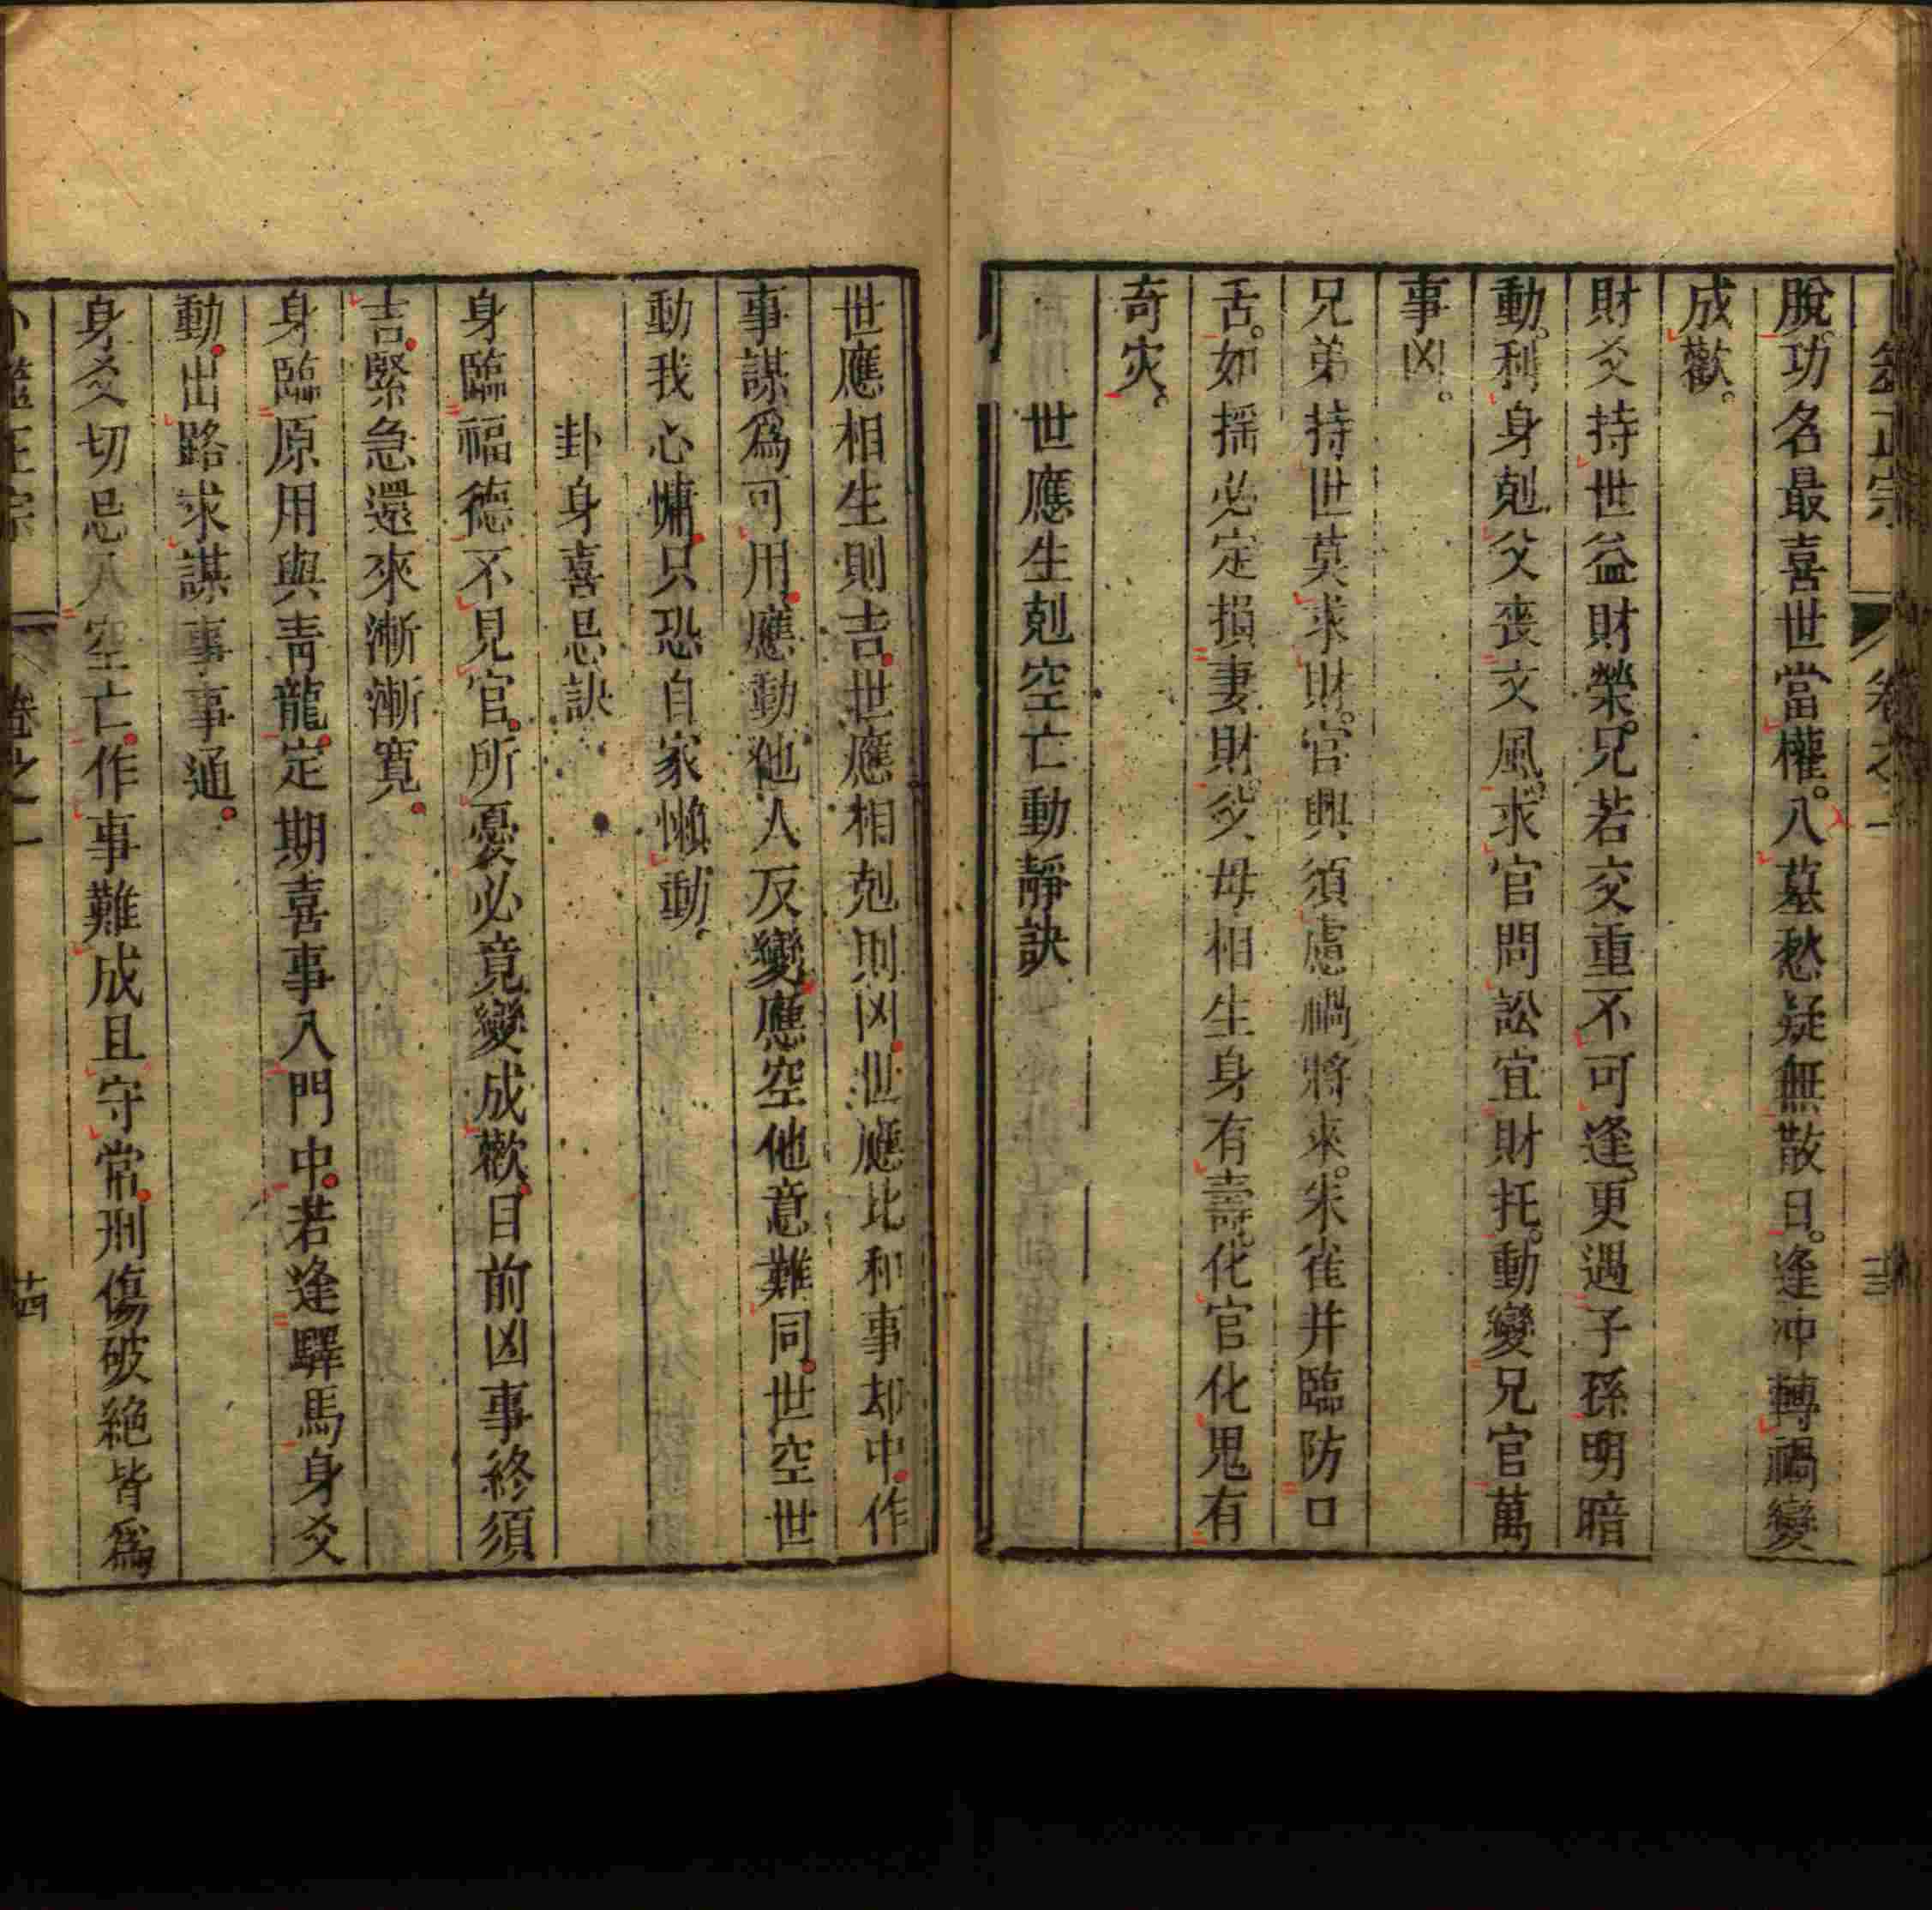 筮正宗 卷之一 十三
脫。功名最喜世當權。入墓愁疑無散日。逢冲轉禍變
成歡。
財爻持世益財榮。兄若交重不可逢。更遇子孫明暗
動。利身剋父喪文風。求官問訟宜財托。動變兄官萬
事凶。
兄弟持世莫求財。官興須慮禍將來。朱雀并臨防口
舌。如搖必定損妻財。父母相生身有壽。化官化鬼有
奇灾。
世應生剋空亡動靜訣
世應相生則吉世應相剋則凶世應比和事却中作
事謀爲可用應動他人反變應空他意難同世空世
動我心慵只恐自家懶動。
卦身喜忌訣
身臨福德不見官所憂必竟變成歡目前凶事終須
吉緊急還來漸漸寬
身臨原用與青龍定期喜事入門中若逢驛馬身爻
動出路求謀事事通
身爻切忌入空亡作事難成且守常刑傷破絶皆爲
卜筮正宗 卷之一 十四